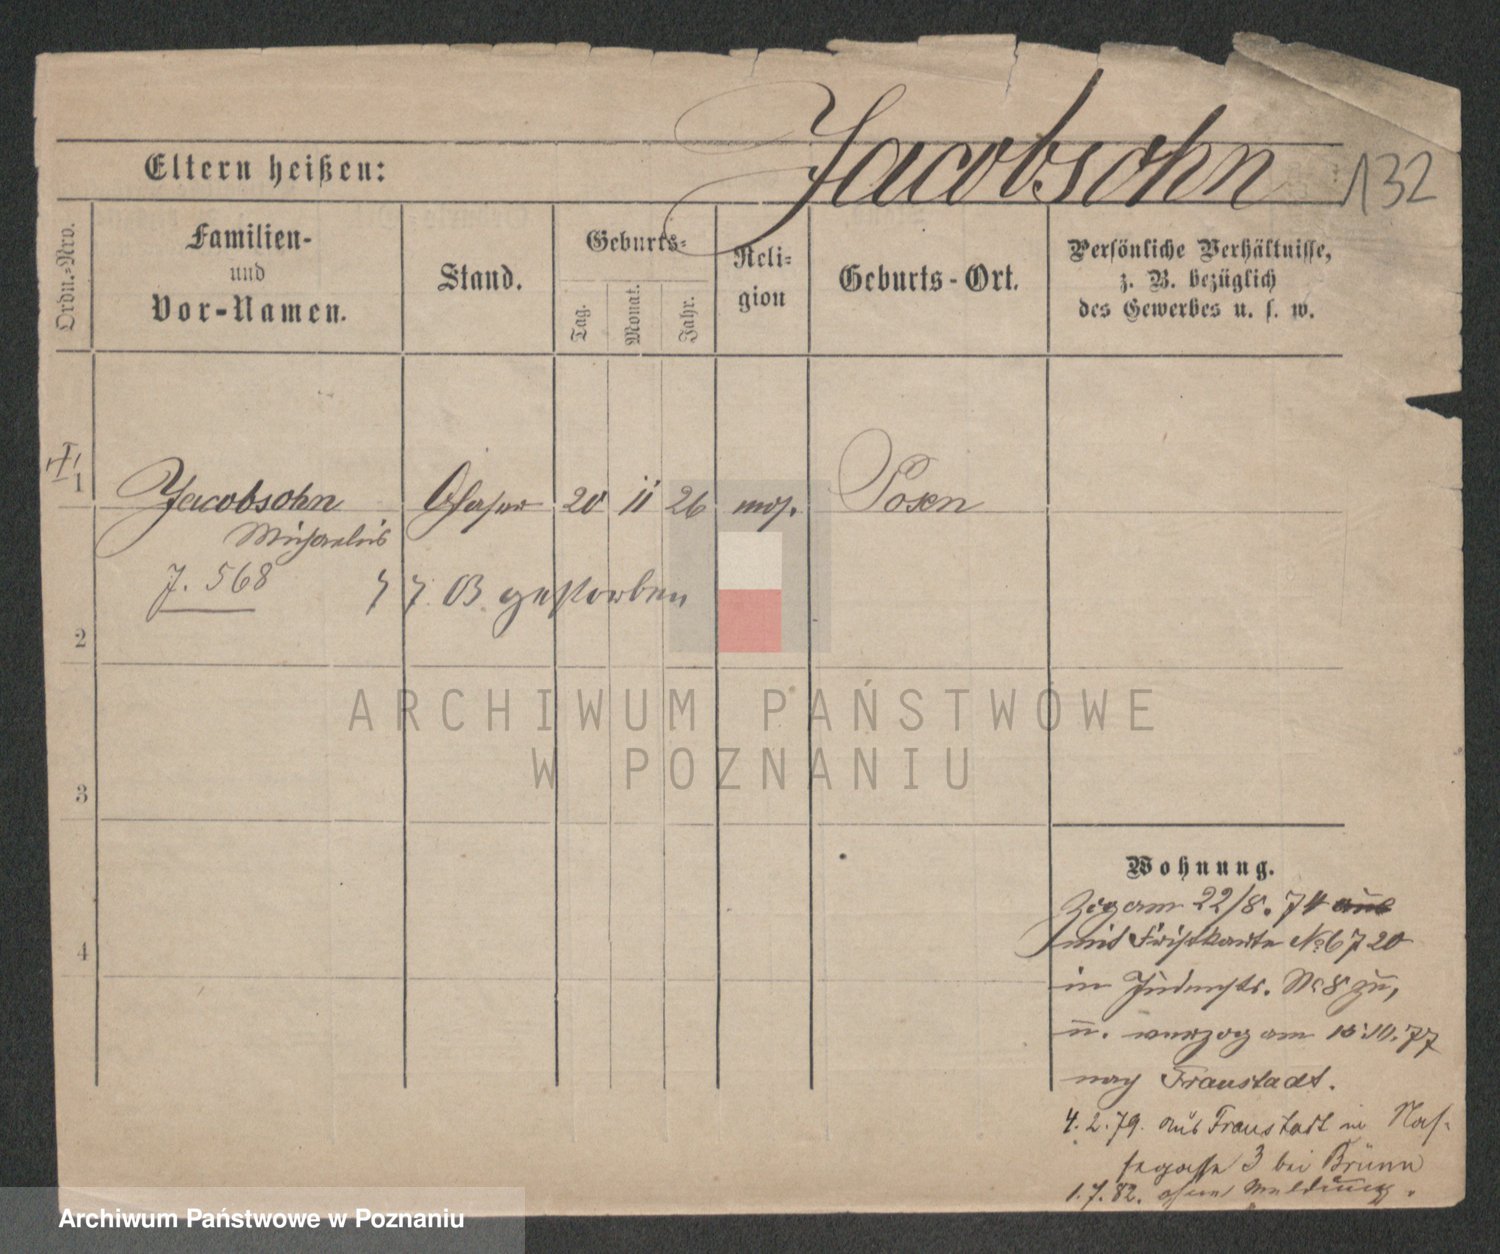 Jacobsohn
132
Eltern heißen:
Ordn.-Nro.
Familien-
und
Vor-Namen.
Stand.
Geburts-
Tag.
Monat.
Jahr.
Reli-
gion
Geburts-Ort.
Persönliche Verhältnisse,
z. B. bezüglich
des Gewerbes u. s. w.
1
Jacobsohn 20 11 26 mos. Posen
Michaelis
J. 568
gestorben
2
ARCHIWUM PAŃSTWOWE
W POZNANIU
3
Wohnung.
Zog am 22/8. 74 aus
mit Fristkarte No 6720
in Judenstr. No 8 zu,
u. verzog am 10.77
nach Fraustadt.
4
4.2.79. aus Fraustadt in Nas-
segasse 3 bei Brünn
1.7.82. ohne Meldung.
Archiwum Państwowe w Poznaniu